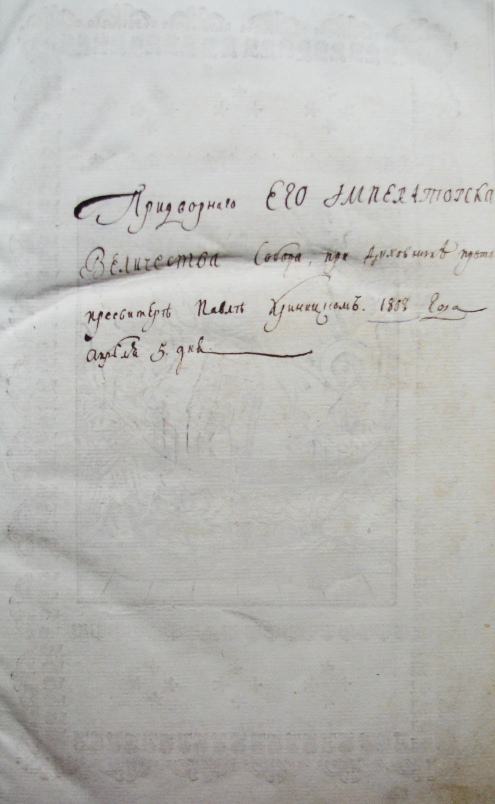 Придворнаго ЕГО ІМПЕРАТОРСКА
ВЕЛИЧЕСТВА Собора, при Духовникѣ прото
пресвитерѣ Павлѣ Криницкомъ. 1808 Года
Апрѣля 5. дня.